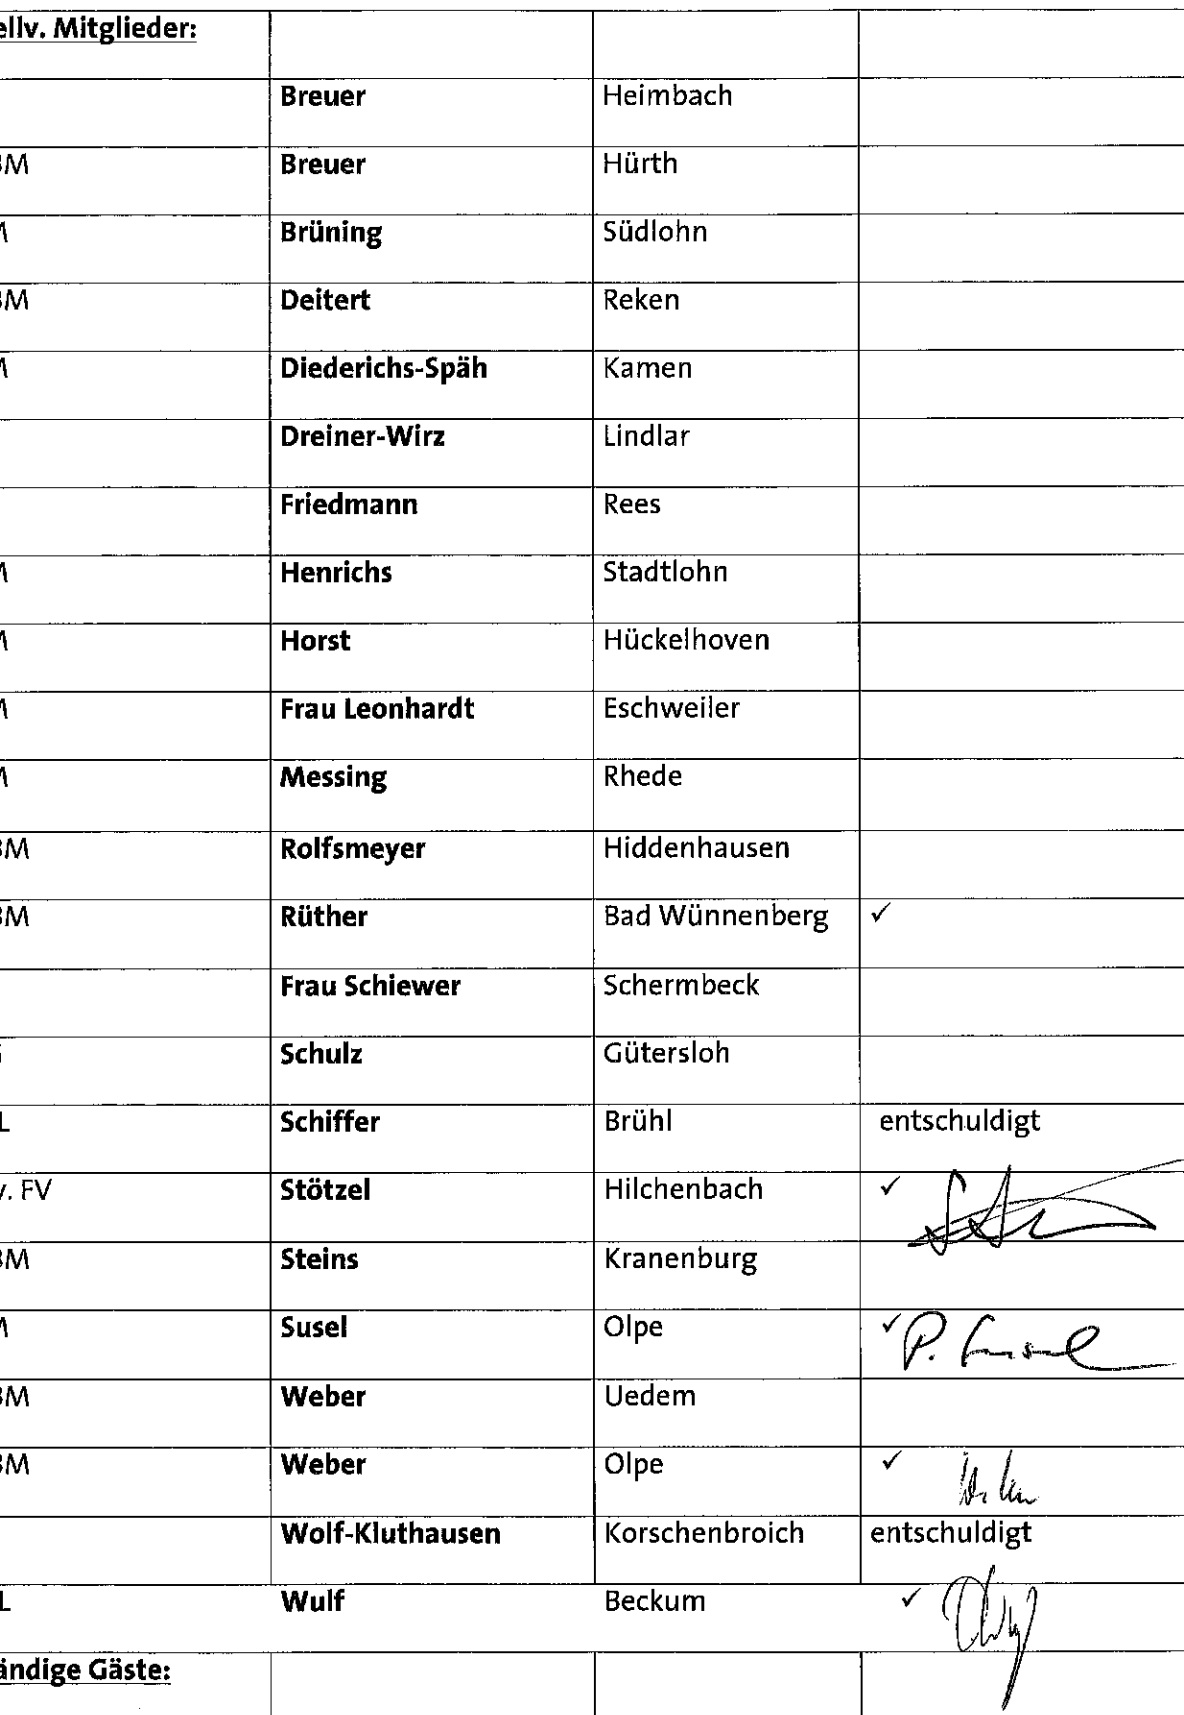 ellv. Mitglieder:
Breuer Heimbach
BM Breuer Hürth
M Brüning Südlohn
BM Deitert Reken
M Diederichs-Späh Kamen
Dreiner-Wirz Lindlar
Friedmann Rees
M Henrichs Stadtlohn
M Horst Hückelhoven
M Frau Leonhardt Eschweiler
M Messing Rhede
BM Rolfsmeyer Hiddenhausen
BM Rüther Bad Wünnenberg ✓
Frau Schiewer Schermbeck
Schulz Gütersloh
L Schiffer Brühl entschuldigt
v. FV Stötzel Hilchenbach ✓
BM Steins Kranenburg
M Susel Olpe ✓ P. Susel
BM Weber Uedem
BM Weber Olpe ✓
Wolf-Kluthausen Korschenbroich entschuldigt
L Wulf Beckum ✓
ändige Gäste: